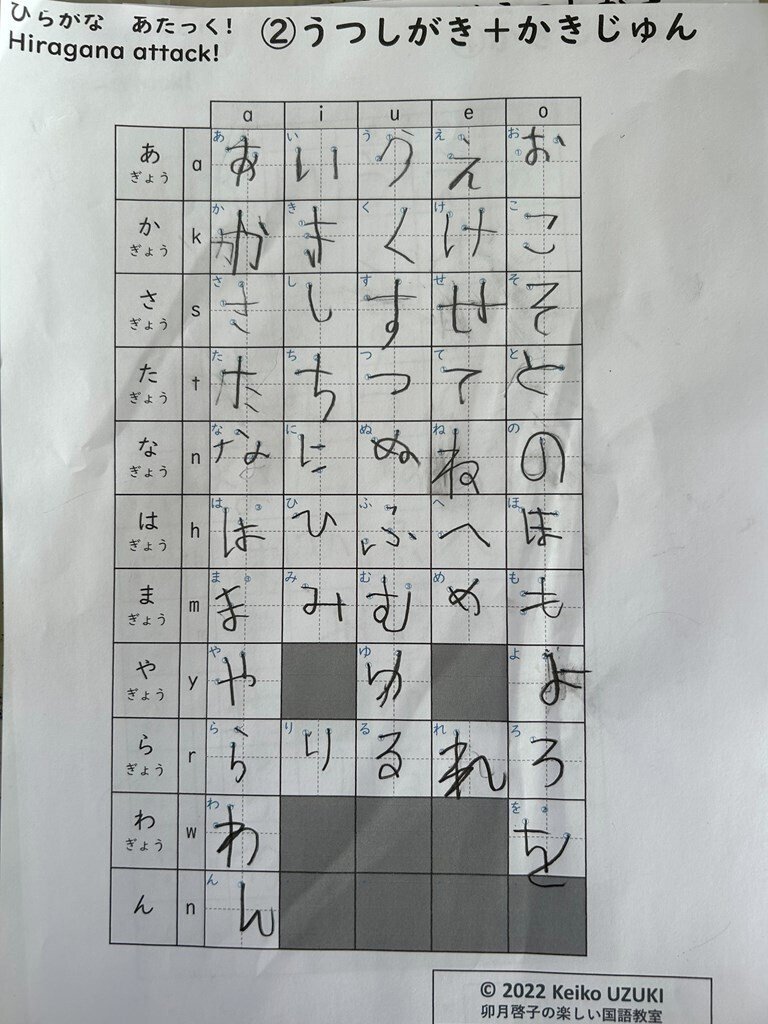 ひらがな　あたっく!
Hiragana attack!
②うつしがき＋かきじゅん
a i u e o
あぎょう a あ あ い い う う え え お お
かぎょう k か か き き く く け け こ こ
さぎょう s さ さ し し す す せ せ そ そ
たぎょう t た た ち ち つ つ て て と と
なぎょう n な な に に ぬ ぬ ね ね の の
はぎょう h は は ひ ひ ふ ふ へ へ ほ ほ
まぎょう m ま ま み み む む め め も も
やぎょう y や や ゆ ゆ よ よ
らぎょう r ら ら り り る る れ れ ろ ろ
わぎょう w わ わ を を
ん n ん ん
© 2022 Keiko UZUKI
卯月啓子の楽しい国語教室